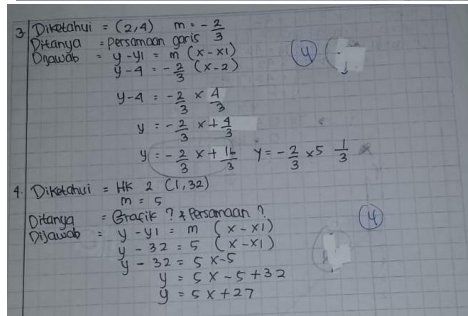 3. Diketahui = (2,4) m = - 2/3
Ditanya = Persamaan garis
Dijawab = y - y1 = m (x - x1)
y - 4 = - 2/3 (x - 2)
y - 4 = - 2/3 x 4/3
y = - 2/3 x + 4/3
y = - 2/3 x + 16/3 y = - 2/3 x 5 1/3
4
4. Diketahui = HK 2 (1,32)
m = 5
Ditanya = Grafik ? & Persamaan ?
Dijawab = y - y1 = m (x - x1)
y - 32 = 5 (x - x1)
y - 32 = 5 x - 5
y = 5 x - 5 + 32
y = 5 x + 27
4